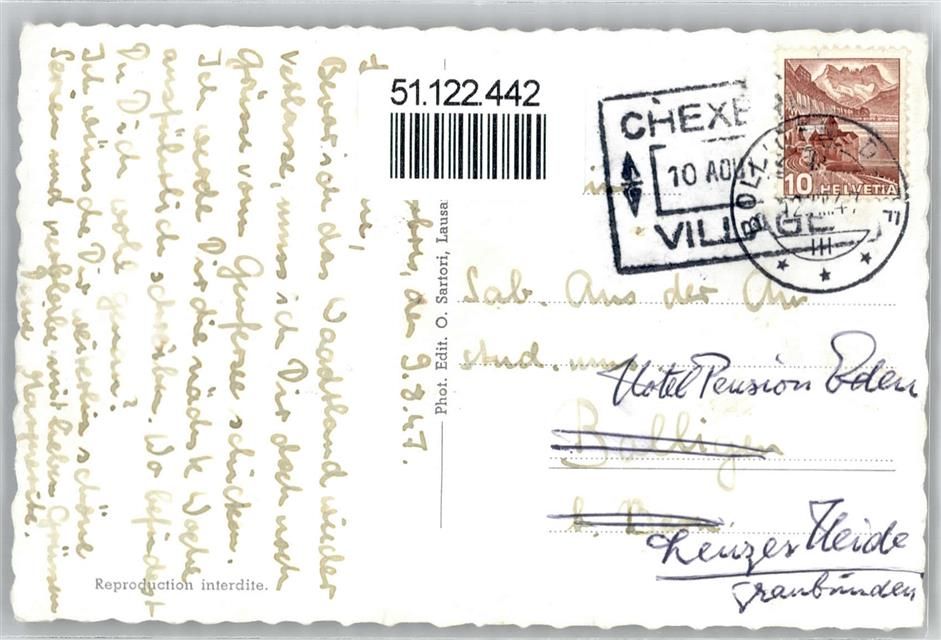 51.122.442
CHEXB
10 AOU
VILLAGE
BOLLIGEN
10 HELVETIA
den 9.8.47.
Bevor ich das Waadtland wieder
verlasse, muss ich Dir doch noch
Grüsse vom Genfersee schicken.
Ich werde Dir die nächste Woche
ausführlich schreiben. Wo befindest
Du Dich wohl genau?
Ich wünsche Dir weiterhin schöne
Ferien und verbleibe mit lieben Grüssen
Deine Marguerite.
Phot. Edit. O. Sartori, Lausa
Reproduction interdite.
Aus der Au
Hotel Pension Eden
Bolligen
b. Bern
Lenzer Heide
Graubünden